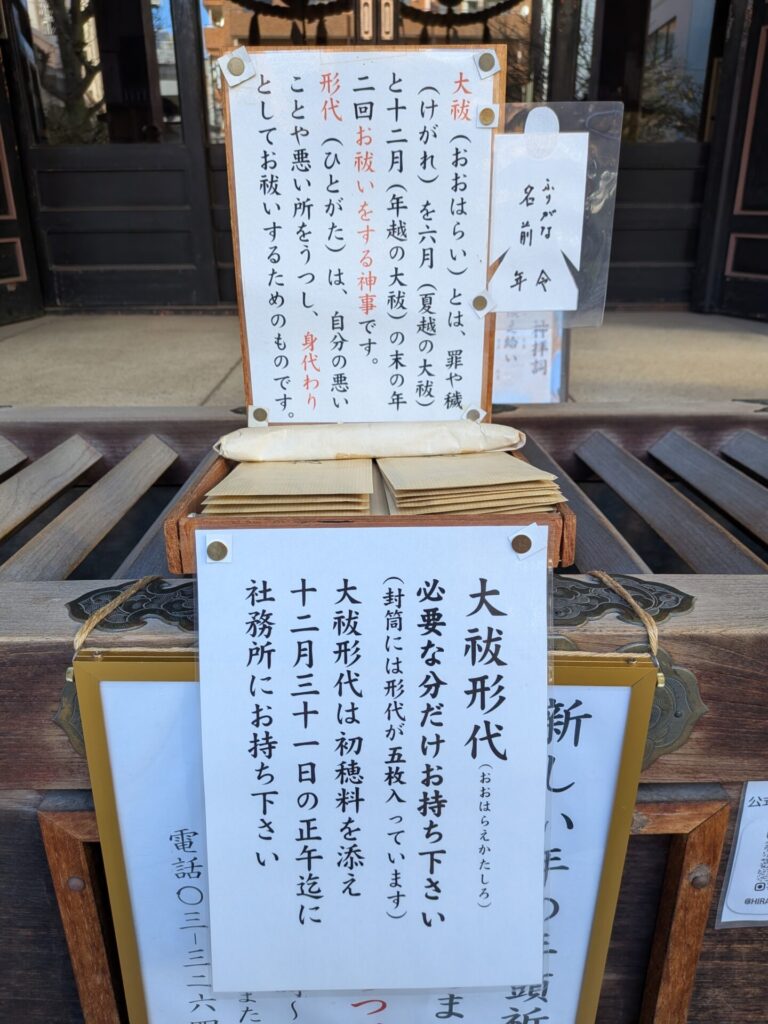 大祓（おおはらい）とは、罪や穢
（けがれ）を六月（夏越の大祓）
と十二月（年越の大祓）の末の年
二回お祓いをする神事です。
形代（ひとがた）は、自分の悪い
ことや悪い所をうつし、身代わり
としてお祓いするためのものです。
ふりがな
名前
年令
神拝詞
給い
大祓形代（おおはらえかたしろ）
必要な分だけお持ち下さい
（封筒には形代が五枚入っています）
大祓形代は初穂料を添え
十二月三十一日の正午迄に
社務所にお持ち下さい
新しい年の年頭祈
電話〇三-三二六
また
公式
@HIRA